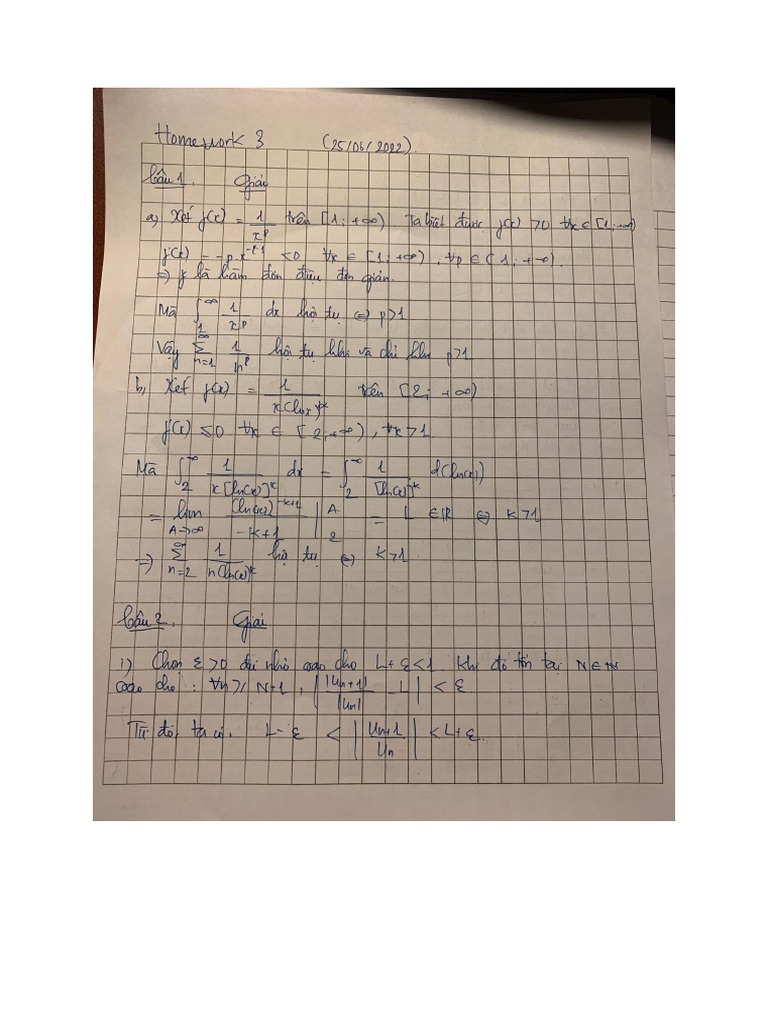 Homework 3 (25/06/2022).
Câu 1. Giải
a) Xét f(x) = 1/x^p trên [1; +∞) Ta biết được f(x) > 0 ∀x ∈ [1; +∞)
f'(x) = -p.x^(-p-1) < 0 ∀x ∈ [1; +∞), ∀p ∈ (1; +∞).
⇒ f là hàm đơn điệu đơn giản.
Mà ∫_1^∞ 1/x^p dx hội tụ ⇔ p>1
Vậy ∑_{n=1}^∞ 1/n^p hội tụ khi và chỉ khi p>1
b, Xét f(x) = 1/(x(lnx)^k) trên [2; +∞)
f'(x) ≤ 0 ∀x ∈ [2; +∞), ∀k > 1.
Mà ∫_2^∞ 1/(x[ln(x)]^k) dx = ∫_2^∞ 1/[ln(x)]^k d(ln(x))
= lim_{A→∞} (ln(x))^(-k+1)/(-k+1) |_2^A = L ∈ ℝ ⇔ k>1
⇒ ∑_{n=2}^∞ 1/(n(ln(x))^k) hội tụ ⇔ k>1.
Câu 2. Giải
i) Chọn ε>0 đủ nhỏ sao cho L+ε<1 Khi đó tồn tại N∈ℕ
sao cho: ∀n ≥ N+1, | |Un+1|/|Un| - L | < ε
Từ đó, ta có. L-ε < | Un+1/Un | < L+ε.